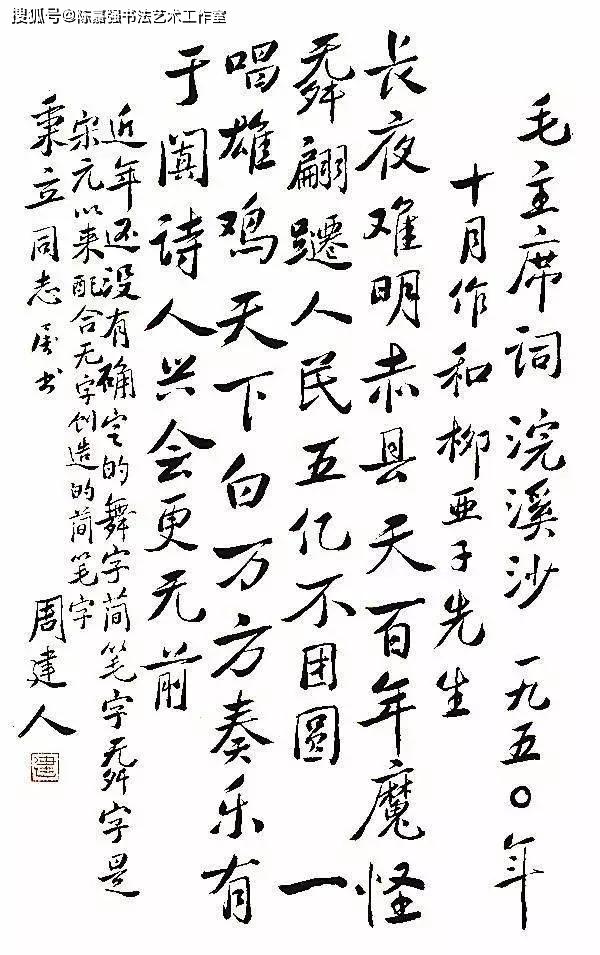 搜狐号@陈嘉强书法艺术工作室
毛主席词浣溪沙 一九五〇年
十月作和柳亚子先生
长夜难明赤县天百年魔怪
舞翩躚人民五亿不团圆一
唱雄鸡天下白万方奏乐有
于阗诗人兴会更无前
近年还没有确定的舞字简笔字舞字是
宋元以来配合无字创造的简笔字
秉立同志属书 周建人
建